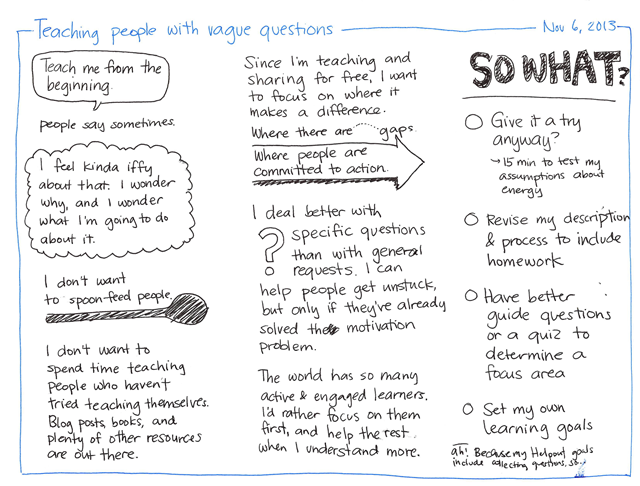 Teaching people with vague questions
Nov 6, 2013
Teach me from the
beginning.
people say sometimes.
I feel kinda iffy
about that. I wonder
why, and I wonder
what I'm going to do
about it.
I don't want
to spoon-feed people.
I don't want to
spend time teaching
people who haven't
tried teaching themselves.
Blog posts, books, and
plenty of other resources
are out there.
Since I'm teaching and
sharing for free, I want
to focus on where it
makes a difference.
Where there are gaps.
Where people are
committed to action.
I deal better with
? specific questions
than with general
requests. I can
help people get unstuck,
but only if they've already
solved the motivation
problem.
The world has so many
active & engaged learners.
I'd rather focus on them
first, and help the rest
when I understand more.
SO WHAT?
Give it a try
anyway?
→ 15 min to test my
assumptions about
energy
Revise my description
& process to include
homework
Have better
guide questions
or a quiz to
determine a
focus area
Set my own
learning goals
ah! Because my Helpout goals
include collecting questions, so...